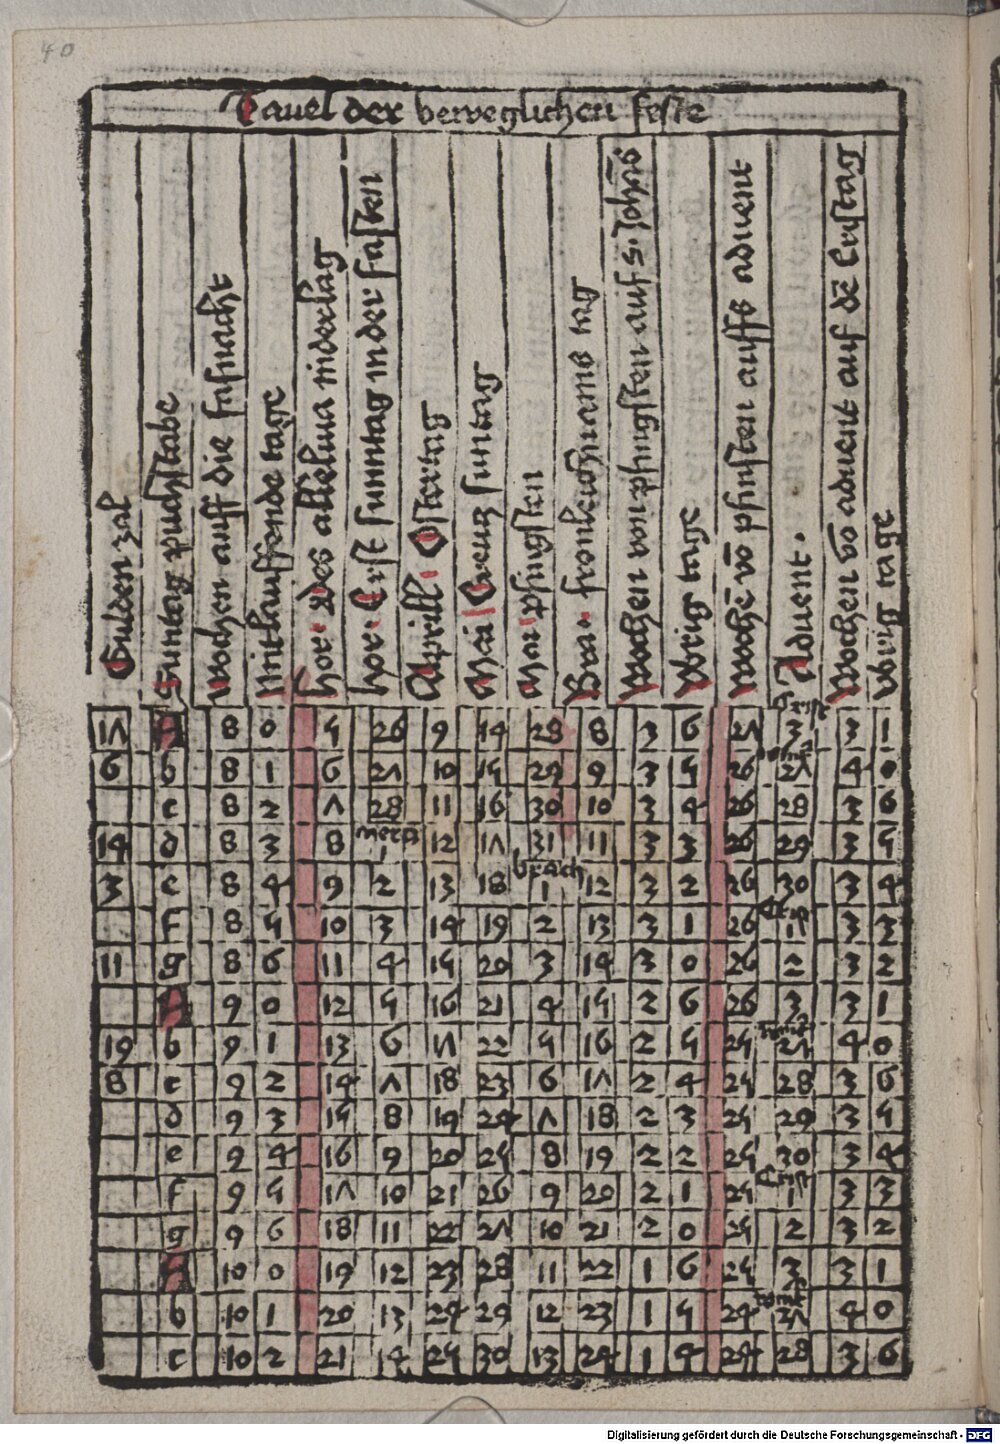 40
Tavel der beweglichen feste
Gulden zal
Suntag puchstabe
wochen auff die fasnacht
Mitlauffende tage
hor. Des alleluia niderlag
hor. Erst sunntag in der fasten
Aprill Ostertag
Mai Creutz suntag
Mai phingsten
Bra. fronleichnams tag
Wochen von phingsten auf s. Johans
Vbrig tage
woche vo phinsten auffs advent
Advent.
Wochen vo advent auf de Cristag
Vbrig tage
Crist
1Λ A 8 0 4 26 9 14 28 8 3 6 2Λ 3 3 1
6 b 8 1 6 2Λ 10 14 29 9 3 4 26 2Λ 4 0
c 8 2 Λ 28 11 16 30 10 3 4 26 28 3 6
14 d 8 3 8 merz 1 12 1Λ 31 11 3 3 26 29 3 4
3 e 8 4 9 2 13 18 brach 1 12 3 2 26 30 3 4
f 8 4 10 3 14 19 2 13 3 1 26 Crist 1 3 3
11 g 8 6 11 4 14 20 3 14 3 0 26 2 3 2
A 9 0 12 4 16 21 4 14 2 6 26 3 3 1
19 b 9 1 13 6 1Λ 22 4 16 2 4 24 2Λ 4 0
8 c 9 2 14 Λ 18 23 6 1Λ 2 4 24 28 3 6
d 9 3 14 8 19 24 Λ 18 2 3 24 29 3 4
e 9 4 16 9 20 24 8 19 2 2 24 30 3 4
f 9 4 1Λ 10 21 26 9 20 2 1 24 Crist 1 3 3
g 9 6 18 11 22 2Λ 10 21 2 0 24 2 3 2
A 10 0 19 12 23 28 11 22 1 6 24 3 3 1
b 10 1 20 13 24 29 12 23 1 4 24 2Λ 4 0
c 10 2 21 14 24 30 13 24 1 4 24 28 3 6
Digitalisierung gefördert durch die Deutsche Forschungsgemeinschaft - DFG